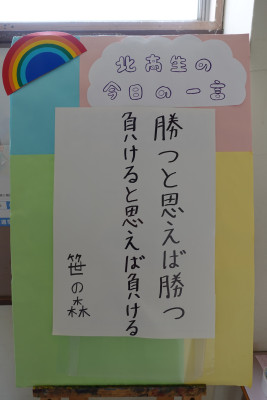 北高生の
今日の一言
勝つと思えば勝つ
負けると思えば負ける
笹の森